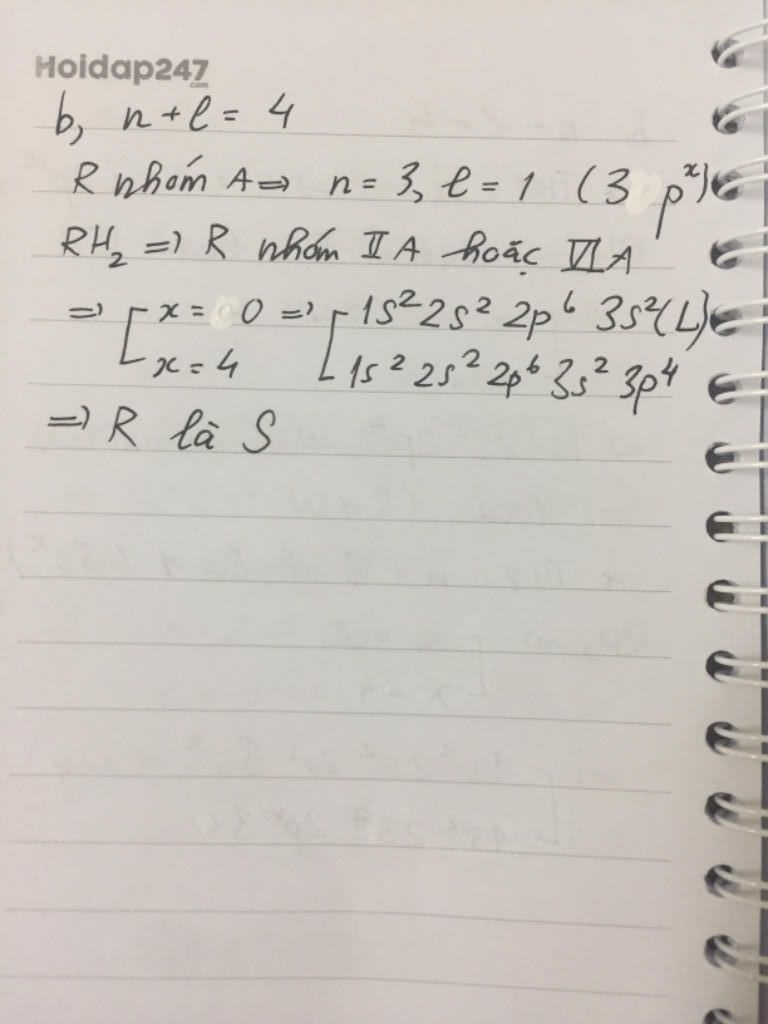 Hoidap247
.com
b, n + l = 4
R nhóm A => n = 3, l = 1 (3 pˣ)
RH₂ => R nhóm II A hoặc VI A
=> [ x = 0 => [ 1s² 2s² 2p⁶ 3s² (L)
x = 4 1s² 2s² 2p⁶ 3s² 3p⁴
=> R là S